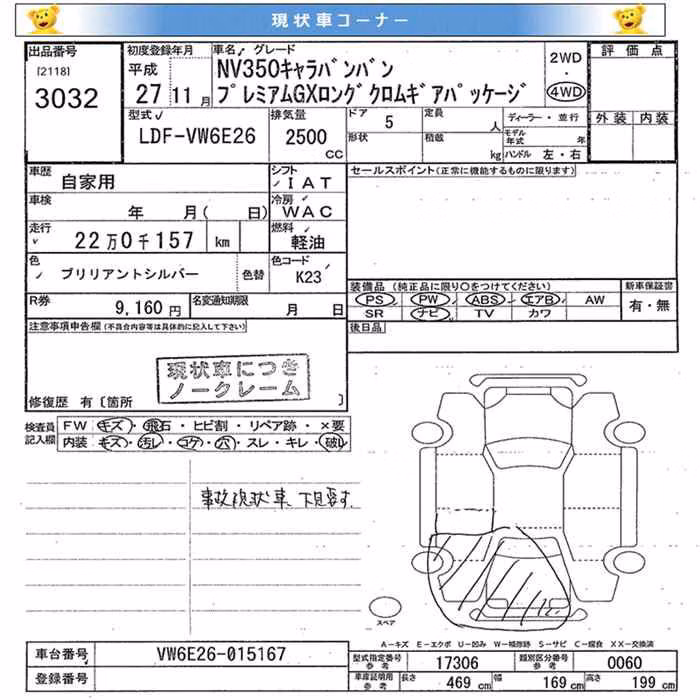 現状車コーナー
出品番号 初度登録年月 車名 グレード 2WD 評価点
[2118] 平成 NV350キャラバンバン ・
3032 27 11月 プレミアムGXロング クロムギアパッケージ 4WD
型式 排気量 ドア 5 定員 人 ディーラー・並行 外装 内装
LDF-VW6E26 2500 CC 形状 積載 kg モデル年式 年
ハンドル 左・右
車歴 自家用 シフト IAT セールスポイント(正常に機能するものに限ります)
車検 年 月( 日) 冷房 WAC
走行 22万0千157 km 燃料 軽油
色 ブリリアントシルバー 色替 色コード K23
装備品 (純正品に限り○をつけてください) 新車保証書
PS PW ABS エアB AW 有・無
SR ナビ TV カワ
R券 9,160円 名変通知期限 月 日
後日品
注意事項申告欄(不具合内容等は具体的に記入して下さい)
現状車につき
ノークレーム
修復歴 有〔箇所 〕
検査員記入欄 FW キズ・飛石・ヒビ割・リペア跡・×要
内装 キズ・汚レ・コゲ・穴・スレ・キレ・破レ
事故現状車、下見要す。
スペア
A―キズ E―エクボ U―凹み W―補修跡 S―サビ C―腐食 XX―交換済
車台番号 VW6E26-015167 型式指定番号 参考 17306 類別区分番号 参考 0060
登録番号 車庫証明用 参考 長さ 469 cm 幅 169 cm 高さ 199 cm